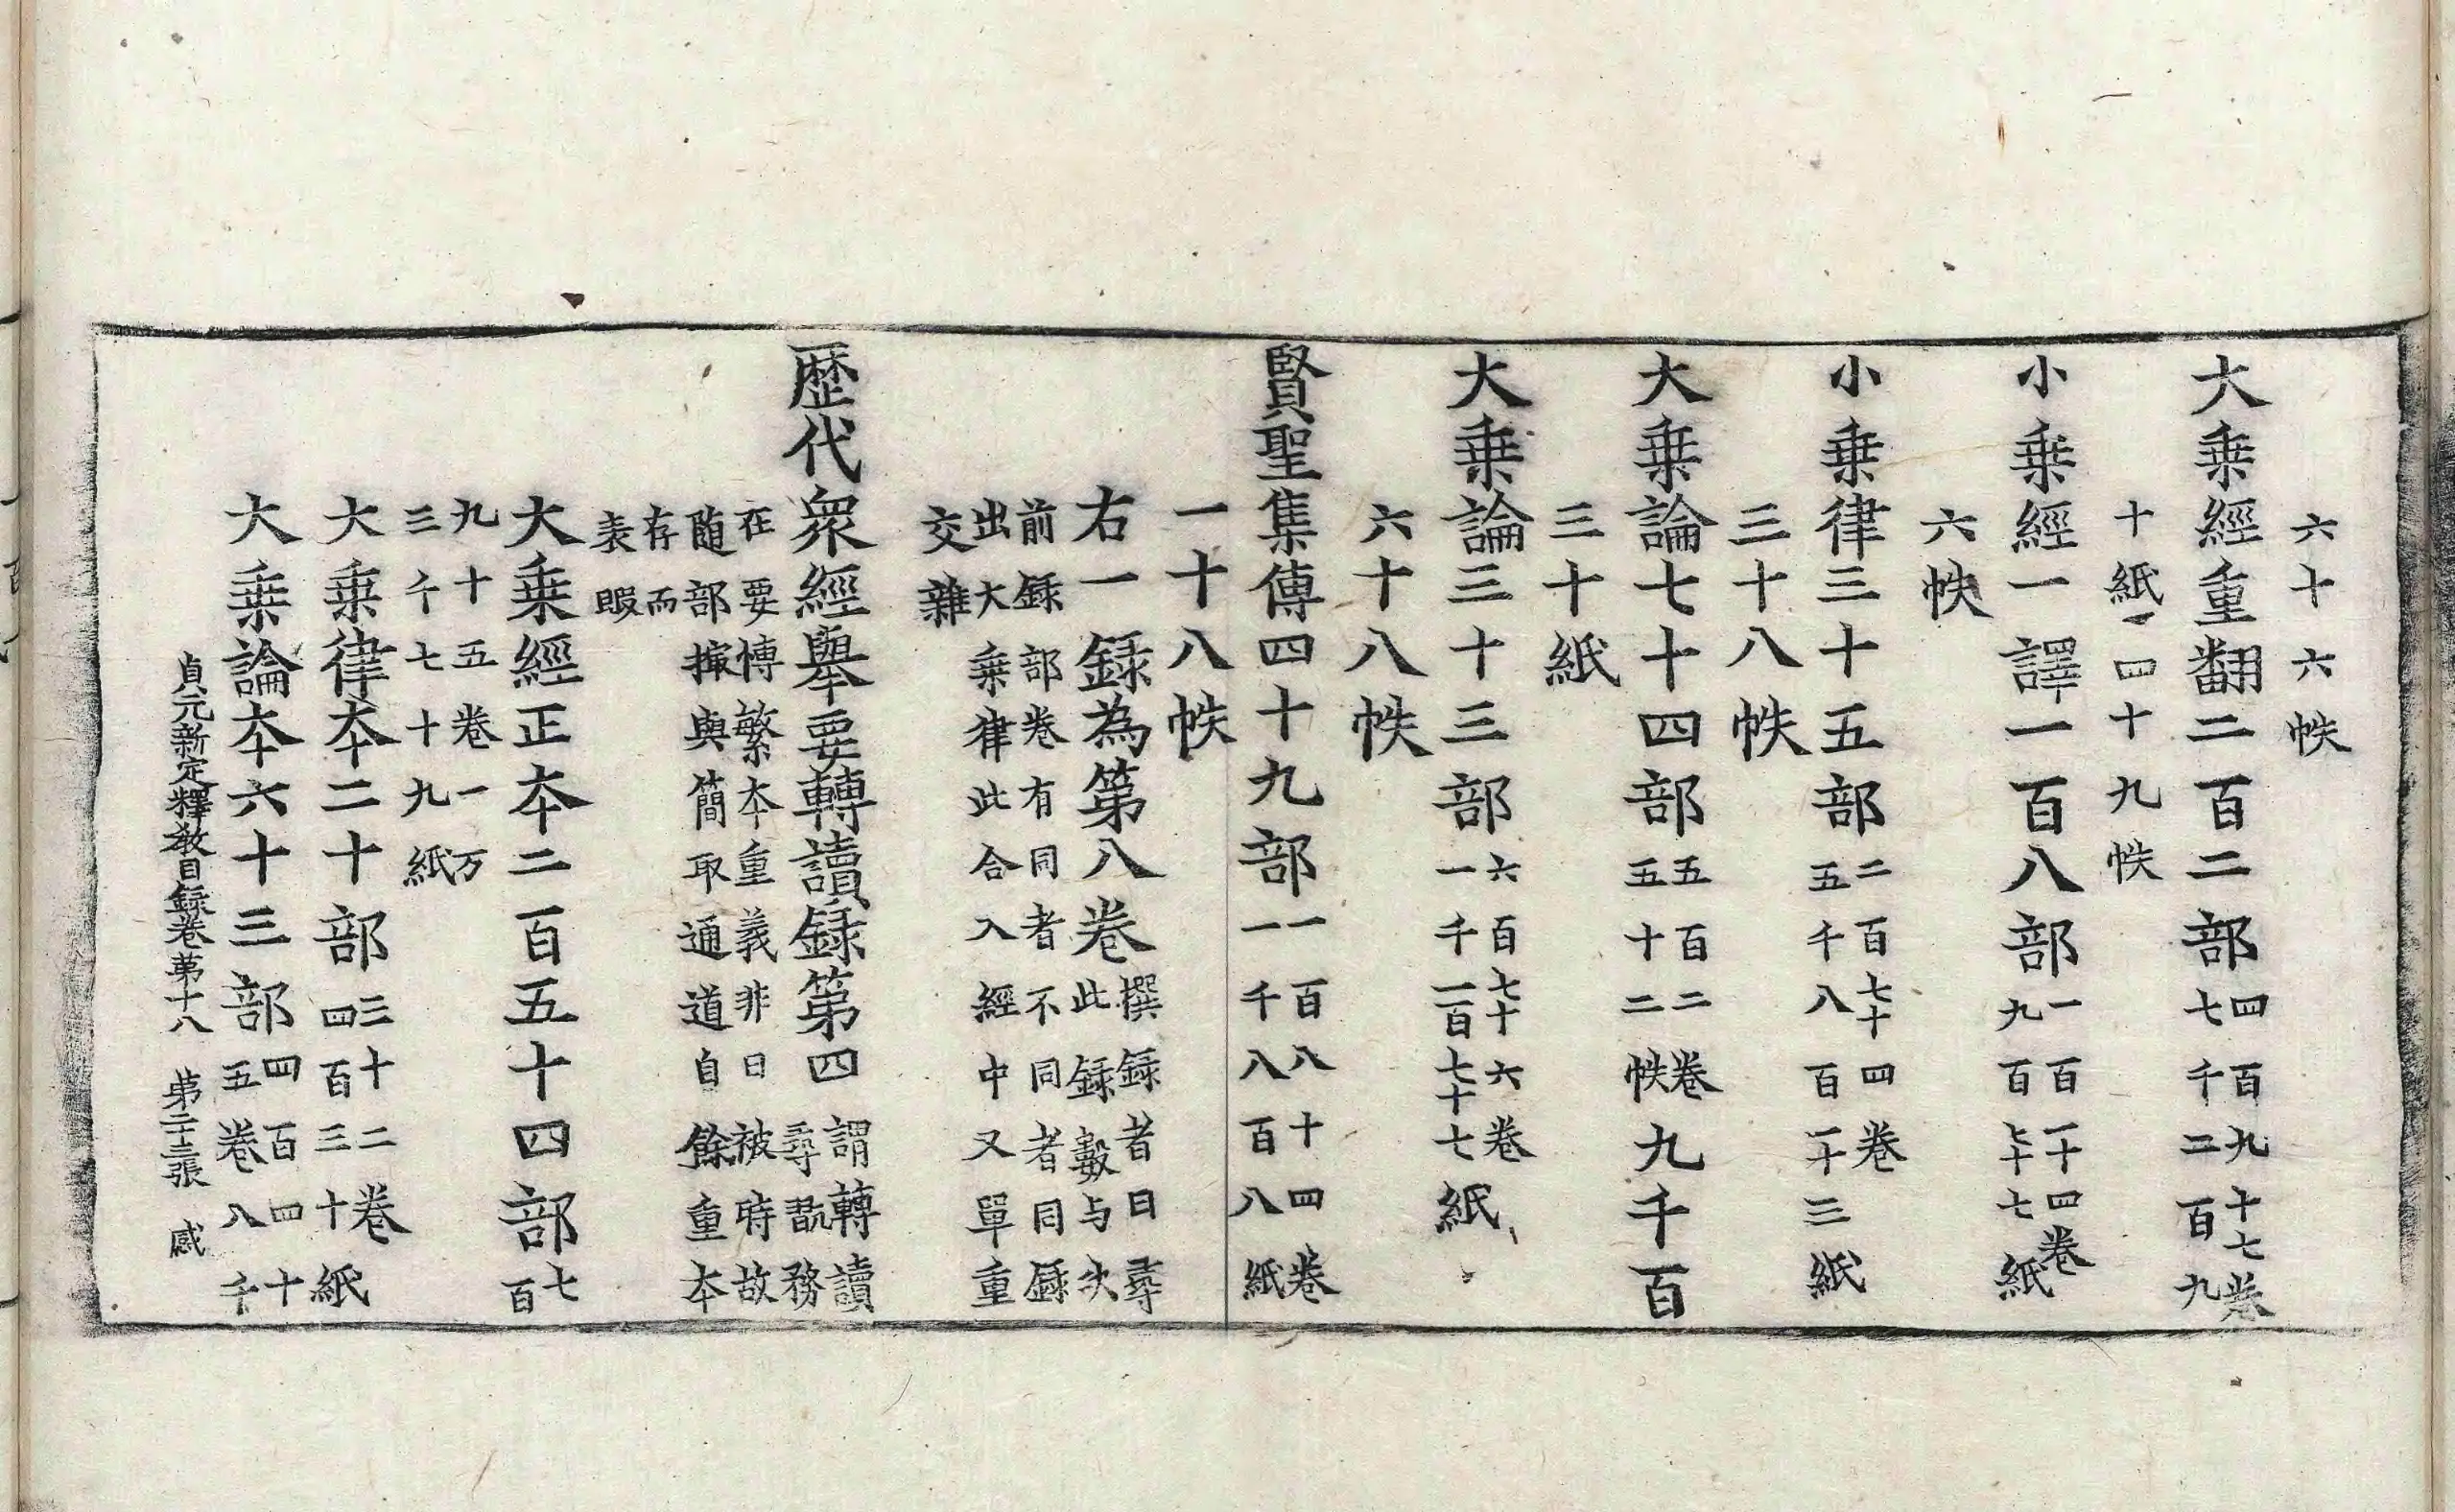 六十六帙
大乗經重翻二百二部四百九十七卷七千二百九
十紙四十九帙
小乗經一譯一百八部一百一十四卷九百七十七紙
六帙
小乗律三十五部二百七十四卷五千八百一十三紙
三十八帙
大乗論七十四部五百二卷五十二帙九千百
三十紙
大乗論三十三部六百七十六卷一千一百七十七紙
六十八帙
賢聖集傳四十九部一百八十四卷一千八百八紙
一十八帙
右一録為第八卷撰録者曰尋此録數与次
前録部卷有同者不同者同録
出大乗律此合入經中又單重
交雜
歴代衆經舉要轉讀録第四謂轉讀尋翫務
在要慱繁本重義非曰被時故
随部㨿與簡取通道自餘重本
存而
表暇
大乗經正本二百五十四部七百
九十五卷一万
三千七十九紙
大乗律本二十部三十二卷四百三十紙
大乗論本六十三部四百四十五卷八千
貞元新定釋教目録卷苐十八　苐二十三張　感